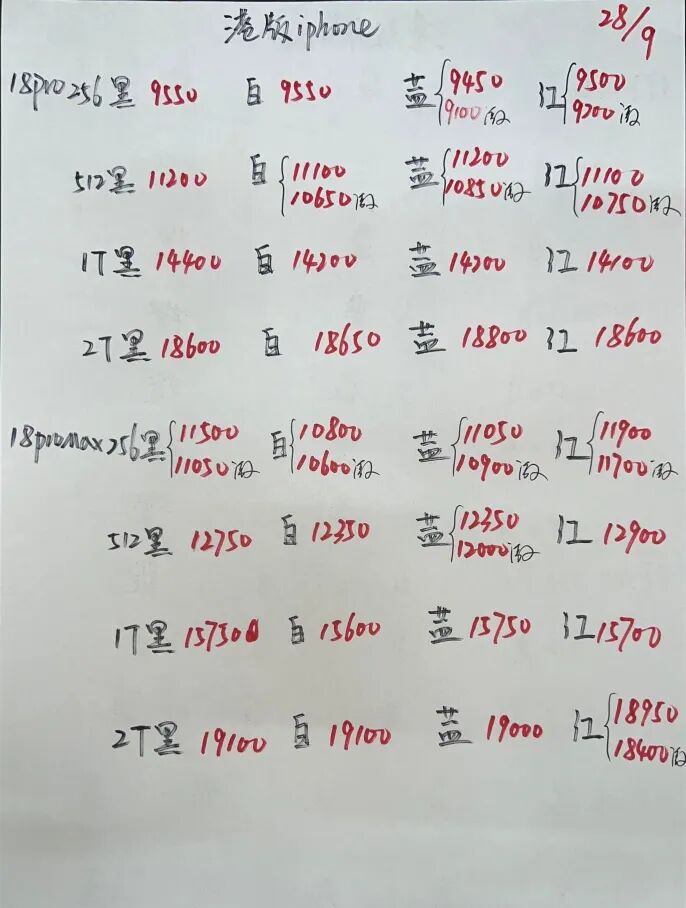 港版iphone 28/9
18pro256黑 9550 白 9550 蓝 9450 红 9500
9100激 9200激
512黑 11200 白 11100 蓝 11200 红 11100
10650激 10850激 10750激
1T黑 14400 白 14200 蓝 14200 红 14100
2T黑 18600 白 18650 蓝 18800 红 18600
18promax256黑 11500 白 10800 蓝 11050 红 11900
11050激 10600激 10900激 11700激
512黑 12750 白 12350 蓝 12350 红 12900
12000激
1T黑 15750 白 15600 蓝 15750 红 15700
2T黑 19100 白 19100 蓝 19000 红 18950
18400激